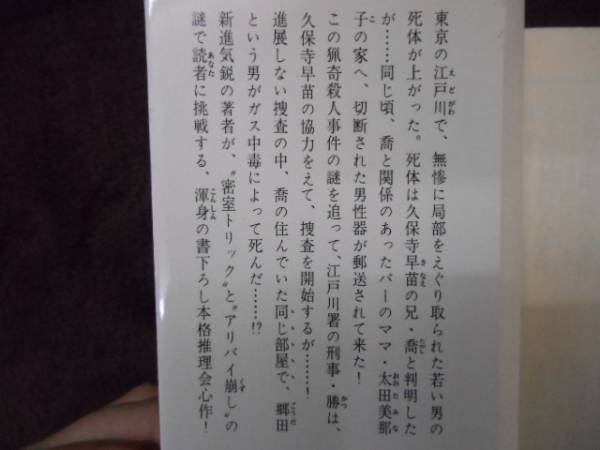 東京の江戸川で、無惨に局部をえぐり取られた若い男の
死体が上がった。死体は久保寺早苗の兄・喬と判明した
が……同じ頃、喬と関係のあったバーのママ・太田美那
子の家へ、切断された男性器が郵送されて来た!
この猟奇殺人事件の謎を追って、江戸川署の刑事・勝は、
久保寺早苗の協力をえて、捜査を開始するが……!
進展しない捜査の中、喬の住んでいた同じ部屋で、郷田
という男がガス中毒によって死んだ……!?
新進気鋭の著者が、“密室トリック”と“アリバイ崩し”の
謎で読者に挑戦する、渾身の書下ろし本格推理会心作!